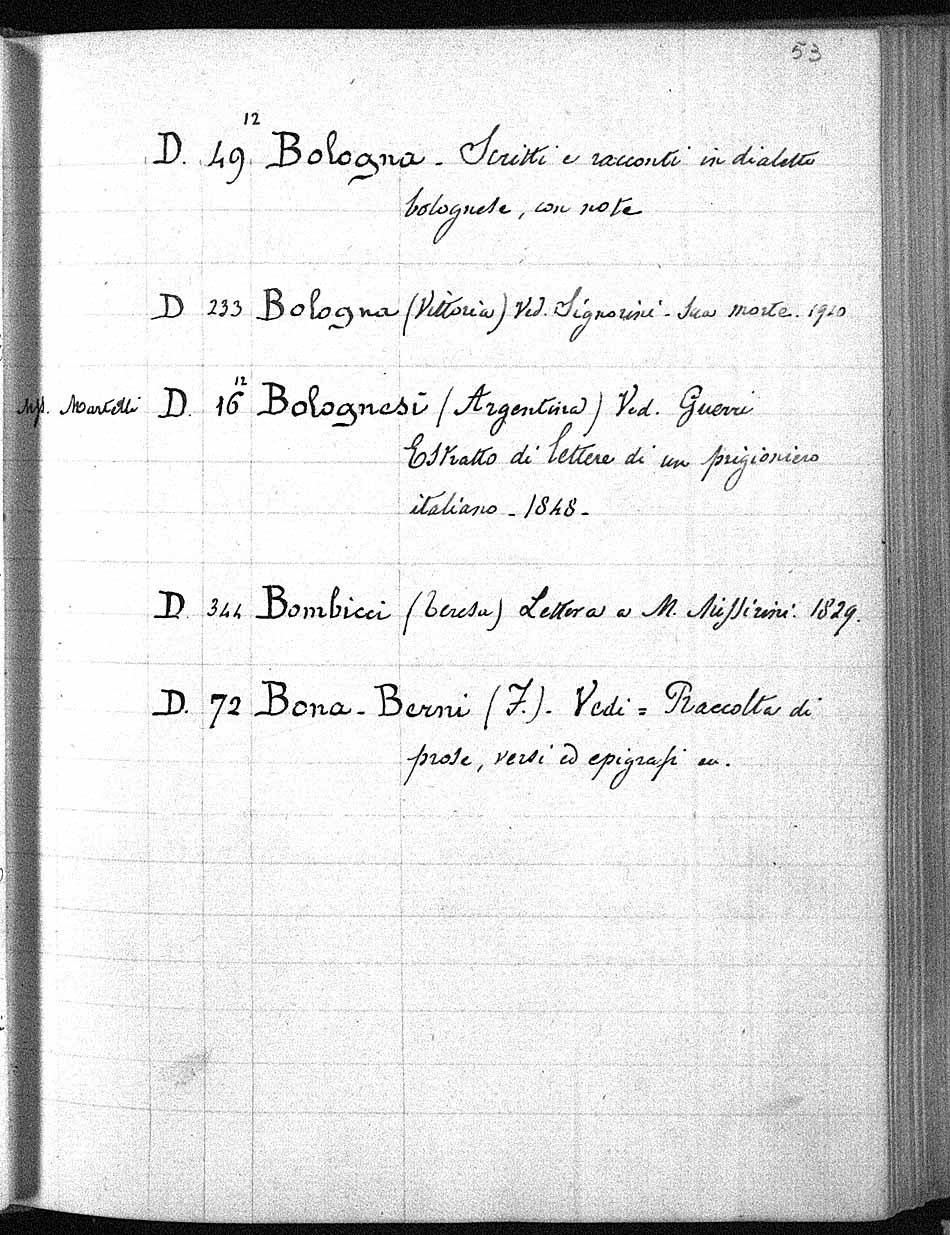 53
D. 49 12 Bologna - Scritti e racconti in dialetto
bolognese, con note
D 233 Bologna (Vittoria) Ved. Signorini - Sua morte. 1910
Mss. Martelli D. 16 12 Bolognesi (Argentina) Ved. Guerri
Estratto di lettere di un prigioniero
italiano - 1848 -
D. 344 Bombicci (Teresa) Lettera a M. Missirini. 1829.
D. 72 Bona - Berni (F.). Vedi = Raccolta di
prose, versi ed epigrafi ec.